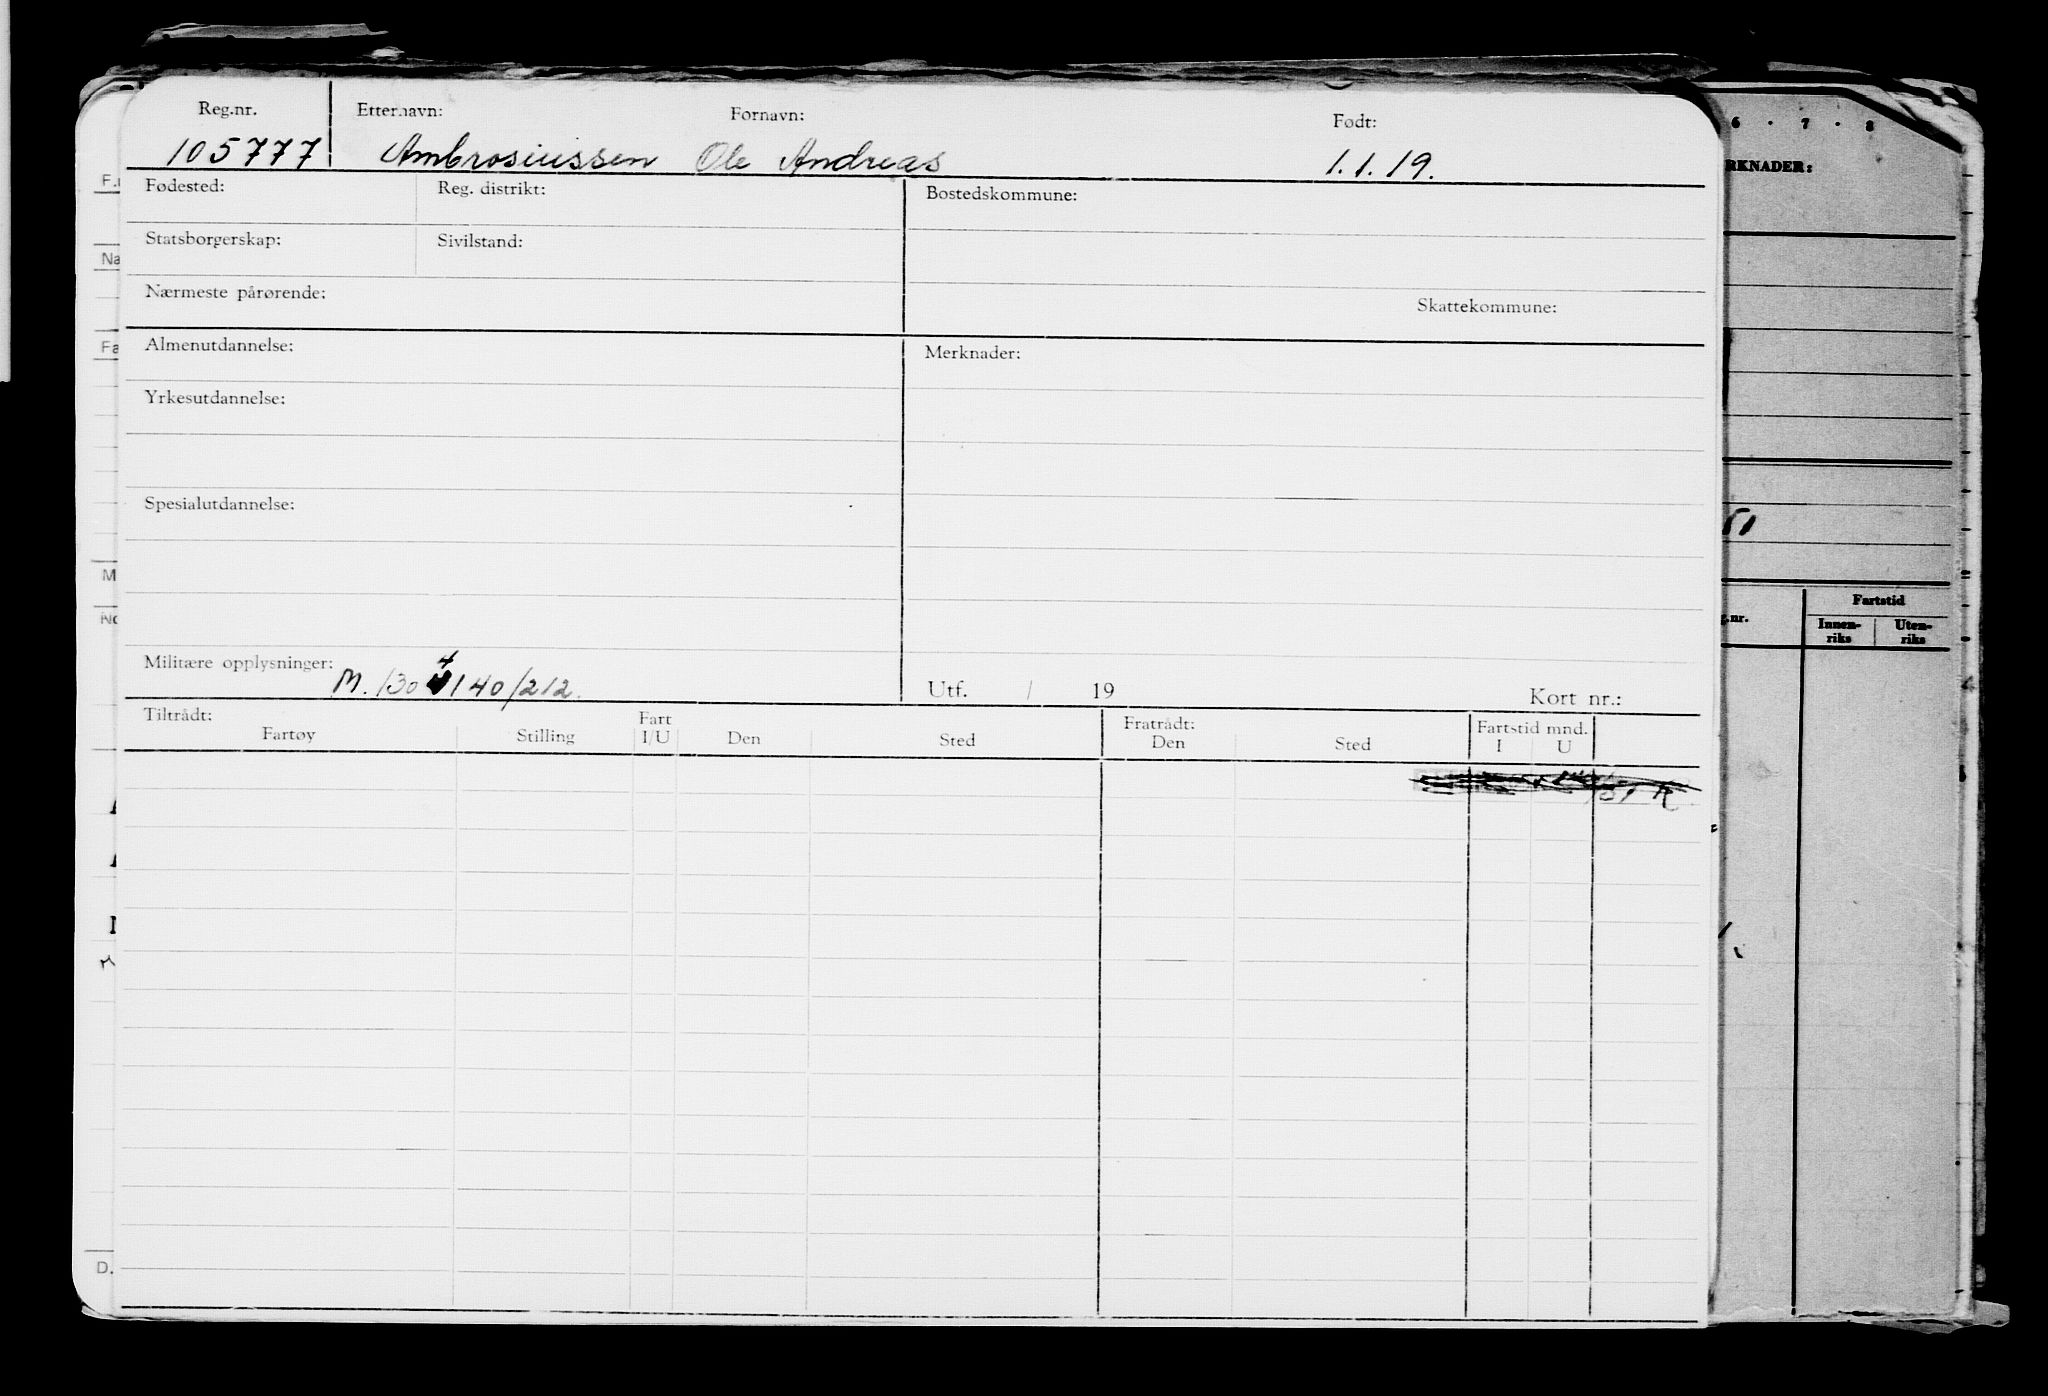 Reg.nr. Etternavn: Fornavn: Født:
105777 Ambrosiussen Ole Andreas 1.1.19.
Fødested: Reg. distrikt: Bostedskommune:
Statsborgerskap: Sivilstand:
Nærmeste pårørende: Skattekommune:
Almenutdannelse: Merknader:
Yrkesutdannelse:
Spesialutdannelse:
Militære opplysninger: M. 130 4 140/212.
Utf. / 19 Kort nr.:
Tiltrådt: Fratrådt: Fartstid mnd.
Fartøy Stilling Fart I/U Den Sted Den Sted I U
6 . 7 . 8
RKNADER:
51
g.nr. Fartstid
Innen-riks Uten-riks
F.
Na
Fa
M
No
D.